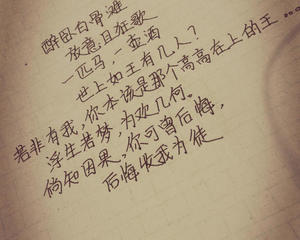 醉卧白骨滩
放意且狂歌
一匹马,一壶酒
世上如王有几人?
若非有我,你本该是那个高高在上的王...
浮生若梦,为欢几何。
倘知因果,你可曾后悔,
后悔收我为徒